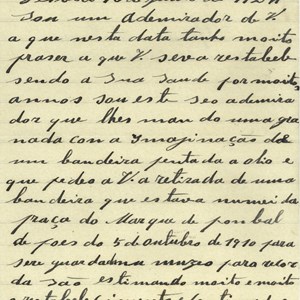 Sou um Ademirador de V.
a que nesta data tanto moito
praser a que V. seva restabele
sendo a Sua Saude por moits
annos sou este seo ademira
dor que lhes mando uma gra
nada con a Imaginação de
um bandeira pentada a olio e
que pedeo a V. a retirada de uma
bandeira que estava numei da
praça do Marqua de ponbal
de poes do 5 de outubro de 1910 para
sere guardada muzeo para recor
da são estimando moito e moito